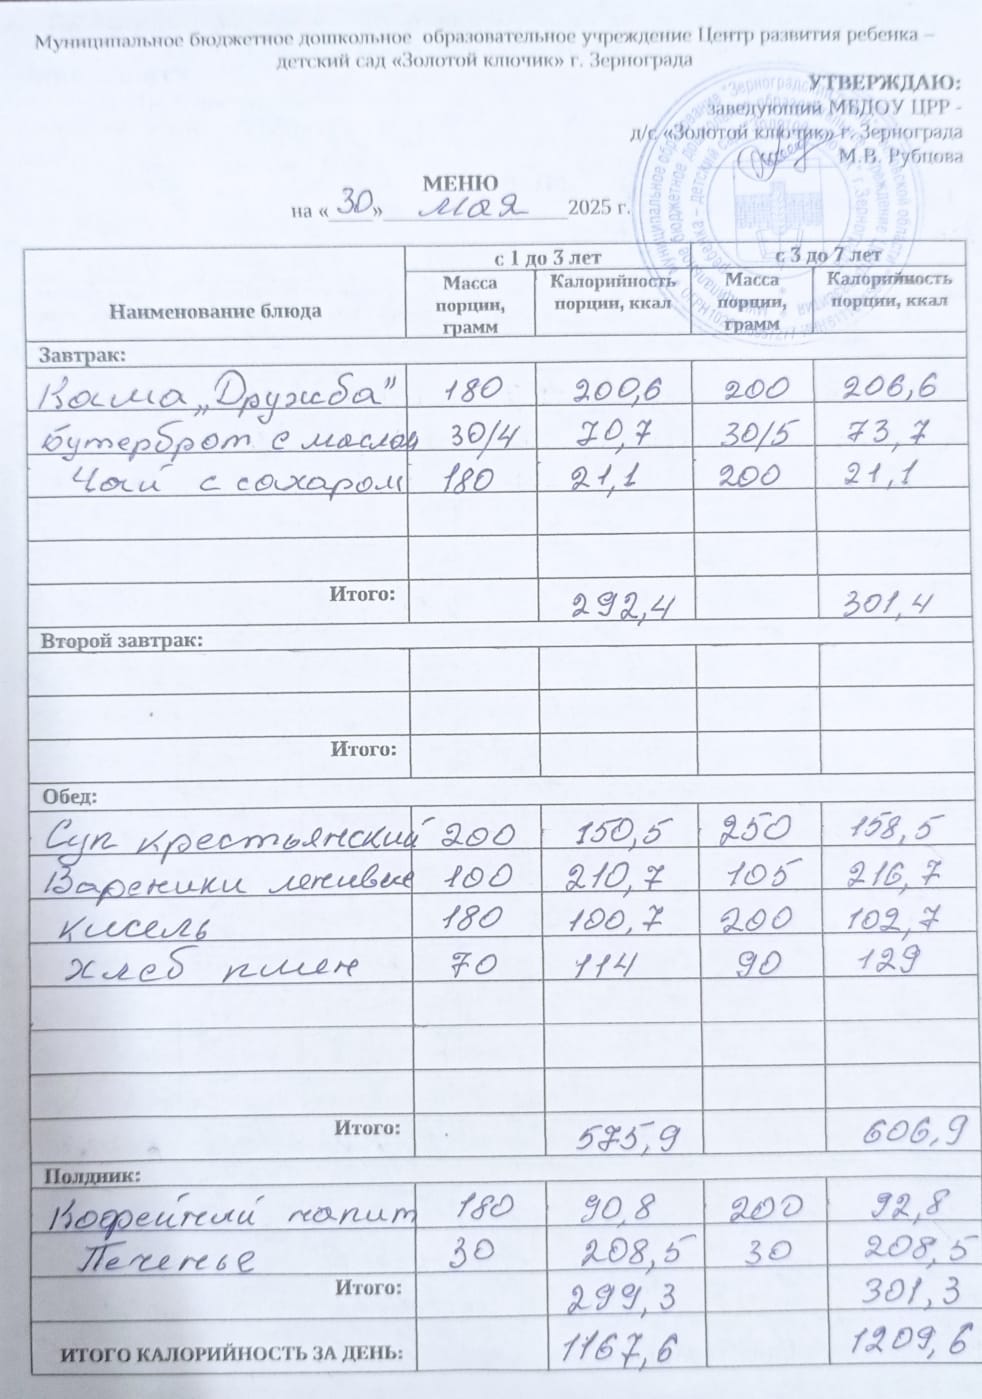 Муниципальное бюджетное дошкольное образовательное учреждение Центр развития ребенка –
детский сад «Золотой ключик» г. Зернограда
УТВЕРЖДАЮ:
заведующий МБДОУ ЦРР -
д/с «Золотой ключик» г. Зернограда
М.В. Рубцова
МЕНЮ
на «30» мая 2025 г.
Наименование блюда с 1 до 3 лет с 3 до 7 лет
Масса порции, грамм Калорийность порции, ккал Масса порции, грамм Калорийность порции, ккал
Завтрак:
Каша „Дружба" 180 200,6 200 206,6
бутерброт с маслом 30/4 70,7 30/5 73,7
Чай с сахаром 180 21,1 200 21,1
Итого: 292,4 301,4
Второй завтрак:
Итого:
Обед:
Суп крестьянский 200 150,5 250 158,5
Вареники ленивые 100 210,7 105 216,7
кисель 180 100,7 200 102,7
хлеб пшен 70 114 90 129
Итого: 575,9 606,9
Полдник:
Кофейный напит 180 90,8 200 92,8
Печенье 30 208,5 30 208,5
Итого: 299,3 301,3
ИТОГО КАЛОРИЙНОСТЬ ЗА ДЕНЬ: 1167,6 1209,6